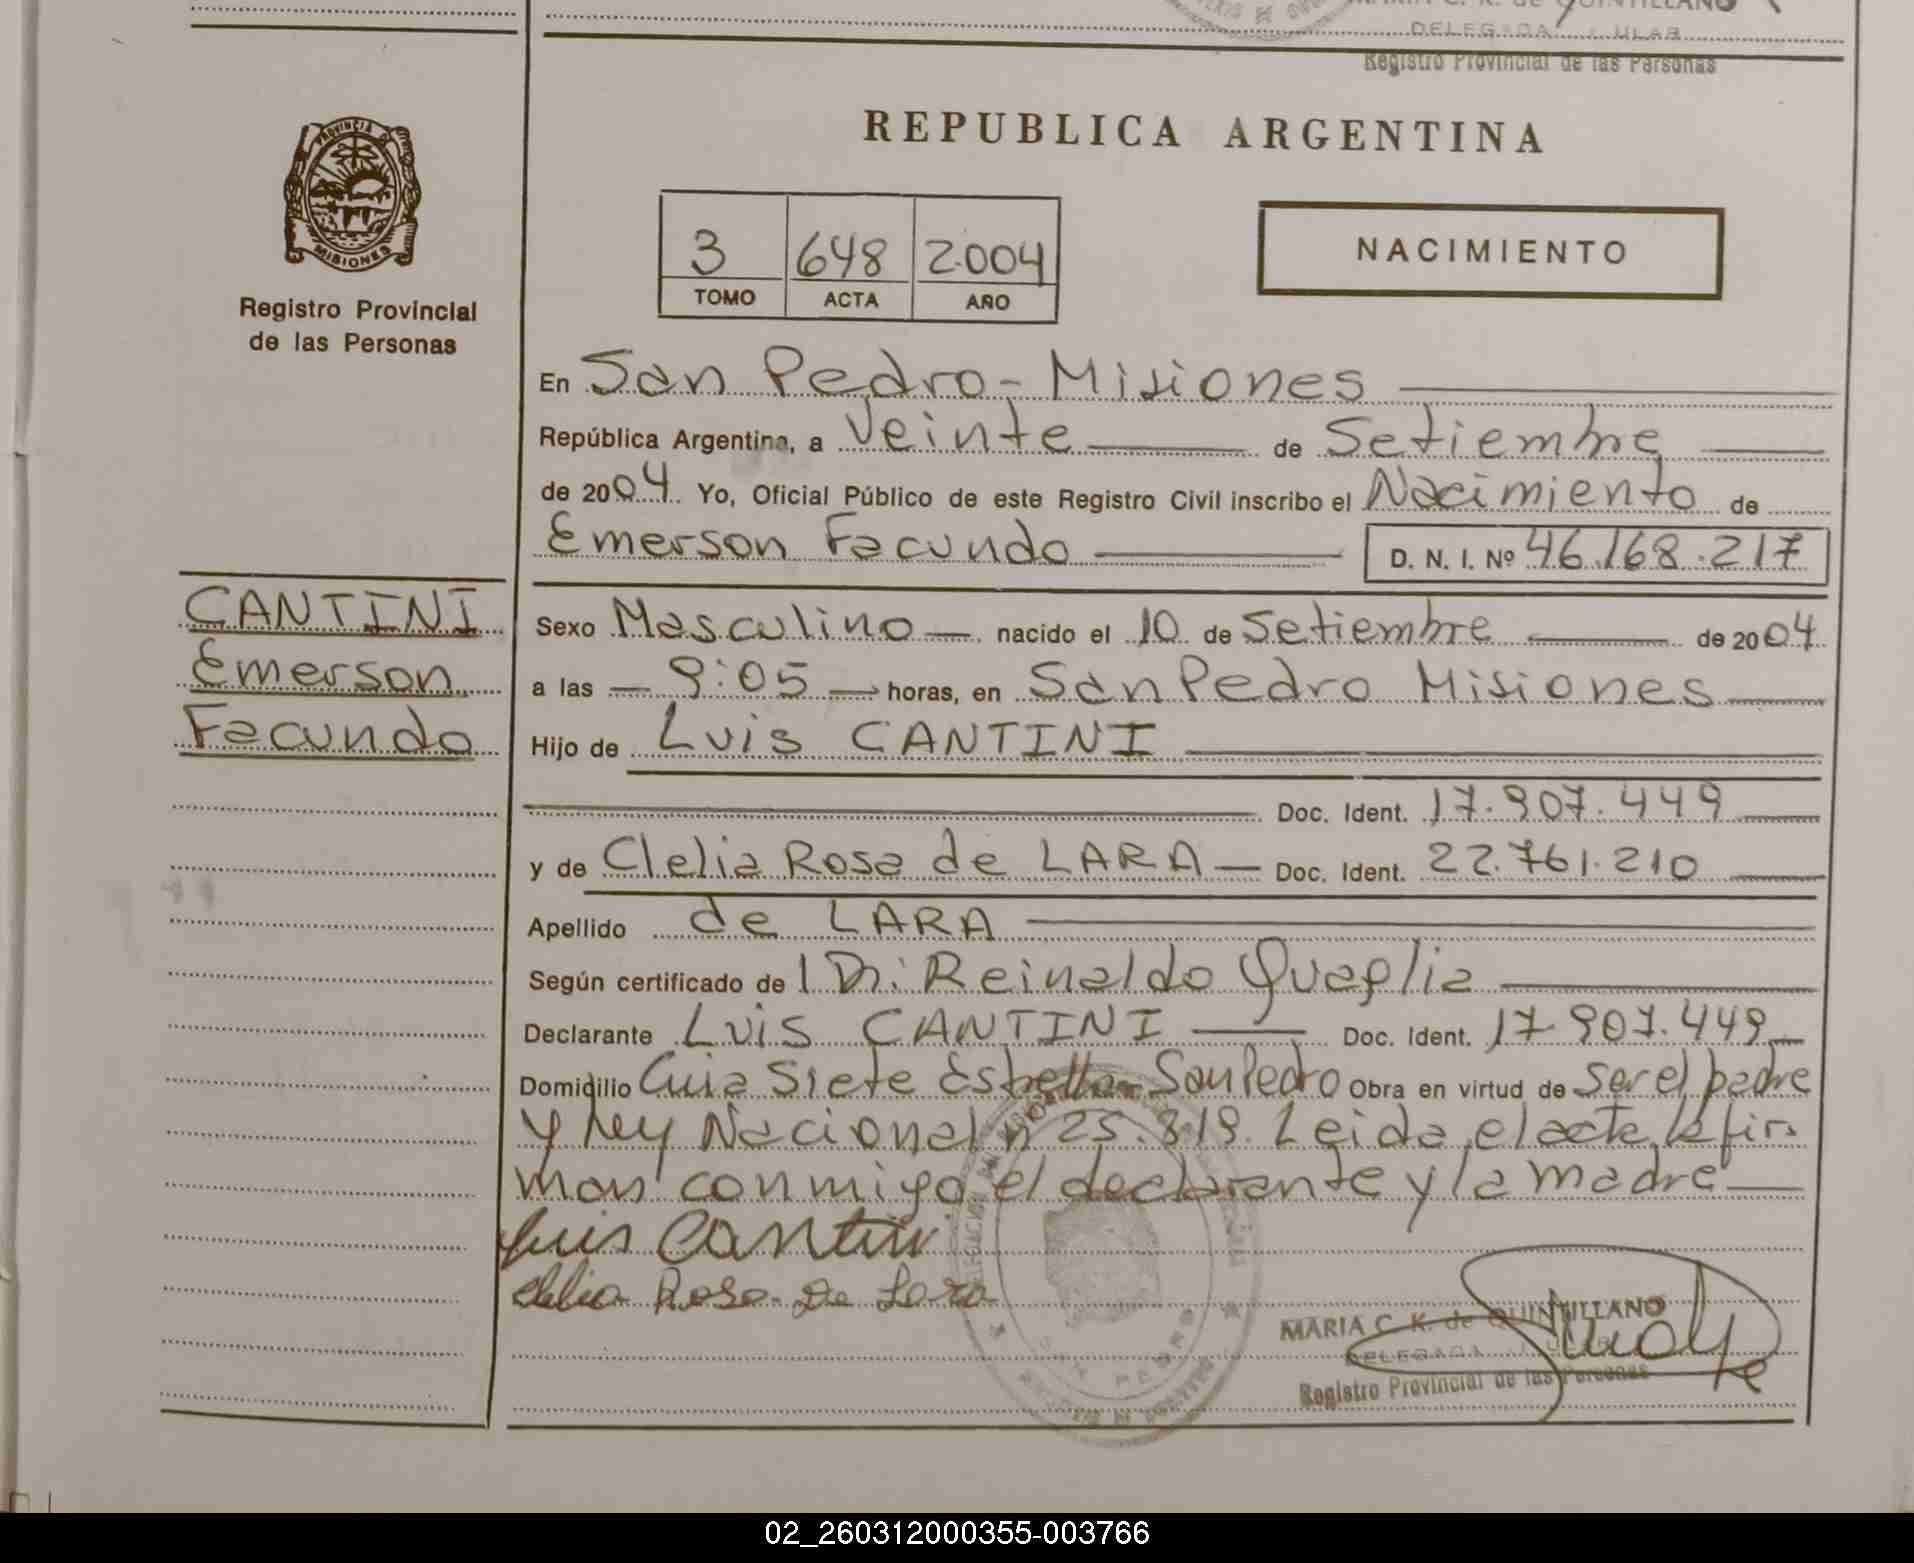 DELEGADA
Registro Provincial de las Personas
PROVINCIA
MISIONES
Registro Provincial
de las Personas
REPUBLICA ARGENTINA
3 648 2004
TOMO ACTA AÑO
NACIMIENTO
En San Pedro - Misiones
República Argentina, a Veinte de Setiembre
de 2004 Yo, Oficial Público de este Registro Civil inscribo el Nacimiento de
Emerson Facundo D. N. I. Nº 46.168.217
CANTINI
Emerson
Facundo
Sexo Masculino nacido el 10 de Setiembre de 2004
a las 9:05 horas, en San Pedro Misiones
Hijo de Luis CANTINI
Doc. Ident. 17.907.449
y de Clelia Rosa de LARA Doc. Ident. 22.761.210
Apellido de LARA
Según certificado de l Dr. Reinaldo Quaglia
Declarante Luis CANTINI Doc. Ident. 17.907.449
Domicilio San Pedro Obra en virtud de Ser el padre
y Ley Nacional nº 25.819. Leida el acta la fir
man conmigo el declarante y la madre
Luis Cantini
Clelia Rosa De Lara
MARIA C. K. de QUINTILLANO
DELEGADA
Registro Provincial de las Personas
02_260312000355-003766